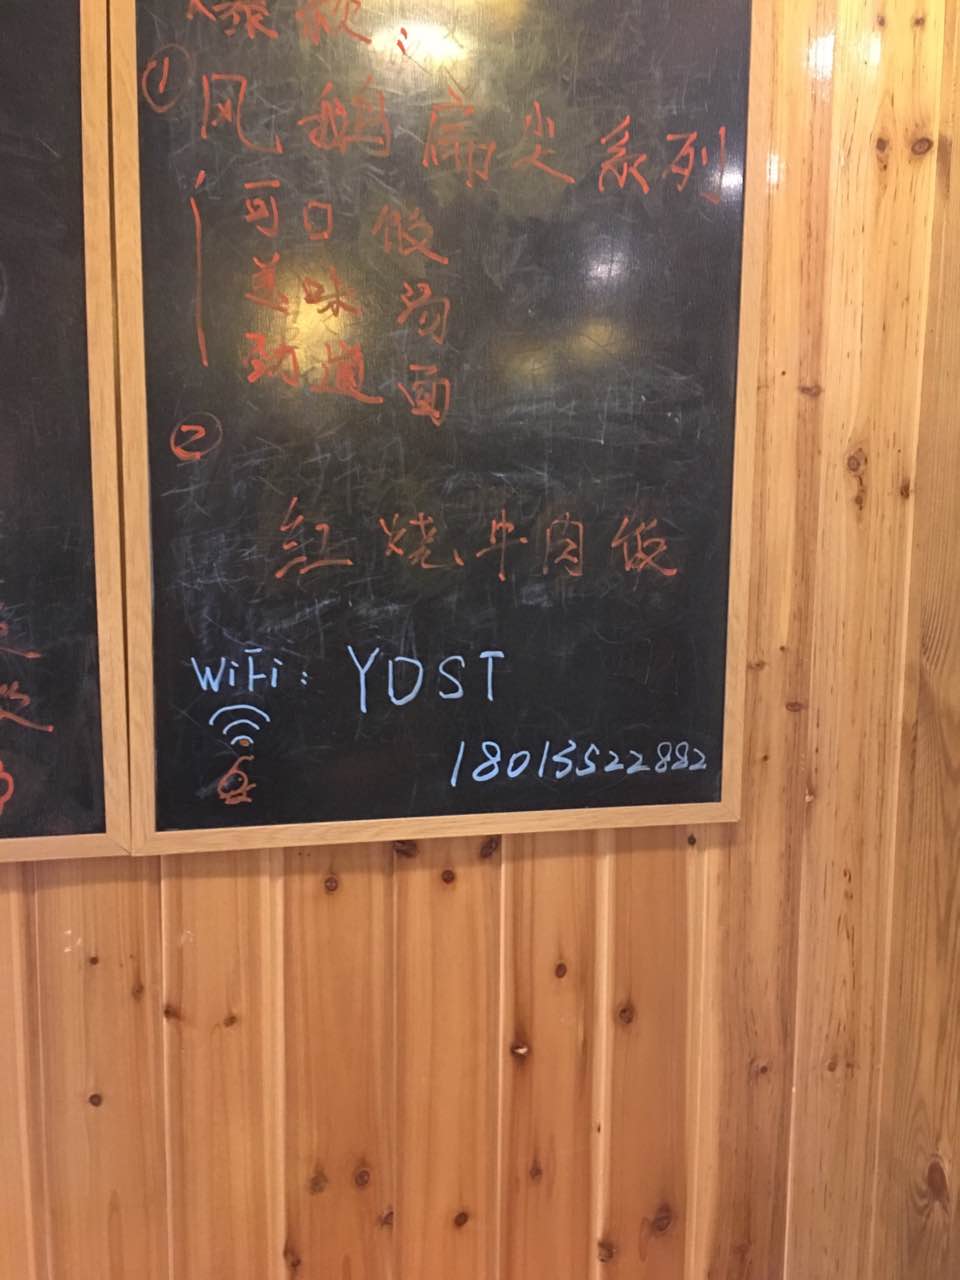 爆款
① 风鹅扁尖系列
可口 饭
美味 汤
劲道 面
②
红烧牛肉饭
WiFi: YDST
18013522882